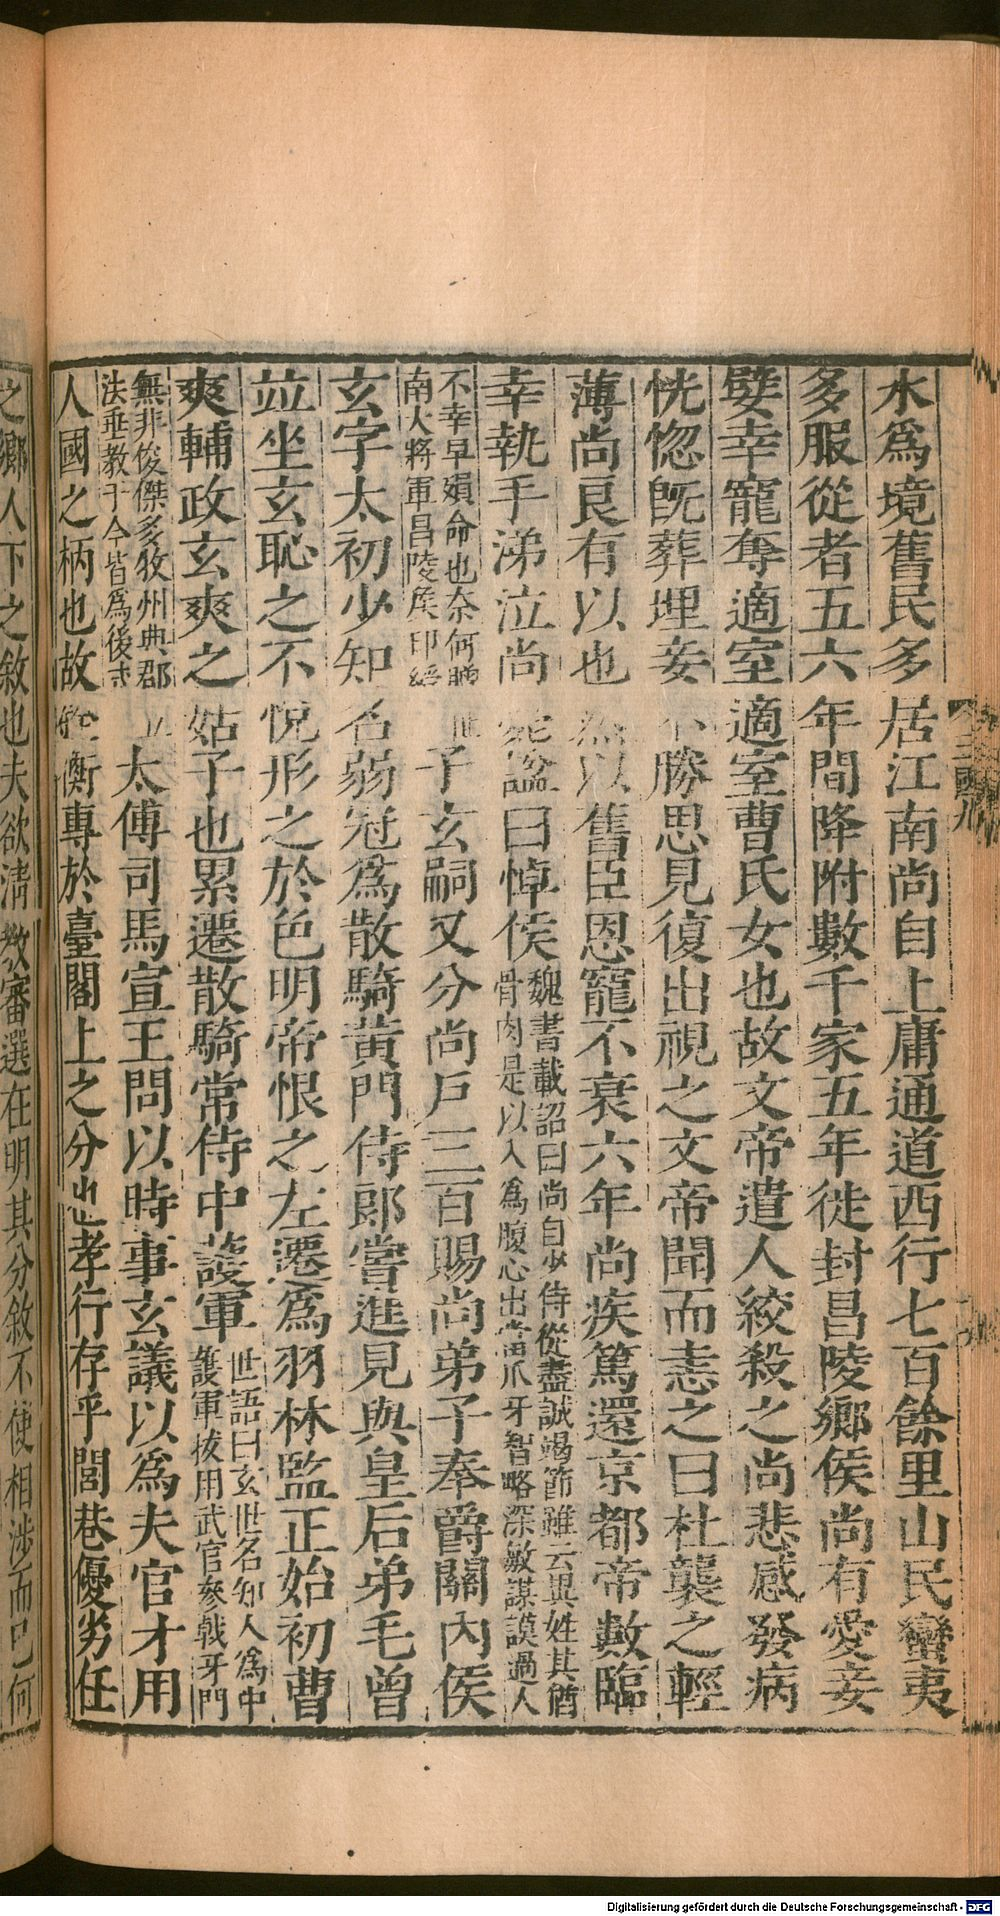 水爲境舊民多居江南尚自上庸通道西行七百餘里山民蠻夷
多服從者五六年間降附數千家五年徙封昌陵鄉侯尚有愛妾
嬖幸寵奪適室適室曹氏女也故文帝遣人絞殺之尚悲感發病
恍惚旣葬埋妾不勝思見復出視之文帝聞而恚之曰杜襲之輕
薄尚良有以也然以舊臣恩寵不衰六年尚疾篤還京都帝數臨
幸執手涕泣尚薨諡曰悼侯
魏書載詔曰尚自少侍從盡誠竭節雖云異姓其猶
骨肉是以入爲腹心出當爪牙智略深敏謀謨過人
不幸早殞命也奈何贈
南大將軍昌陵侯印綬
世子玄嗣又分尚戶三百賜尚弟子奉爵關內侯
玄字太初少知名弱冠爲散騎黃門侍郎嘗進見與皇后弟毛曾
竝坐玄恥之不悅形之於色明帝恨之左遷爲羽林監正始初曹
爽輔政玄爽之姑子也累遷散騎常侍中護軍
世語曰玄世名知人爲中
護軍拔用武官參戟牙門
無非俊傑多牧州典郡立
法垂教于今皆爲後式
太傅司馬宣王問以時事玄議以爲夫官才用
人國之柄也故銓衡專於臺閣上之分也孝行存乎閭巷優劣任
之鄉人下之敘也夫欲淸敎審選在明其分敘不使相涉而已何
三國九
Digitalisierung gefördert durch die Deutsche Forschungsgemeinschaft - DFG